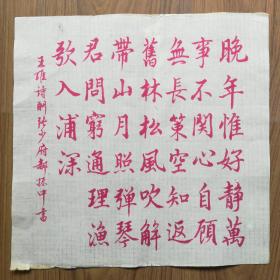 晚年惟好靜萬
事不關心自顧
無長策空知返
舊林松風吹解
帶山月照彈琴
君問窮通理漁
歌入浦深
王維诗酬张少府 中書